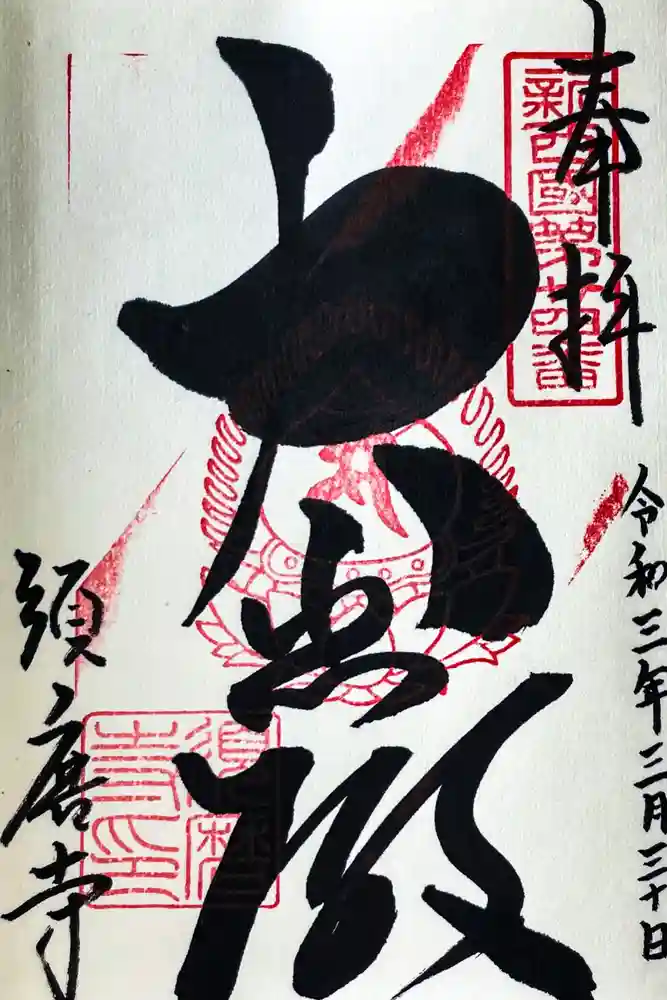 奉拝
新西國第廿四番
令和三年三月三十日
大悲殿
須磨寺
須磨寺印